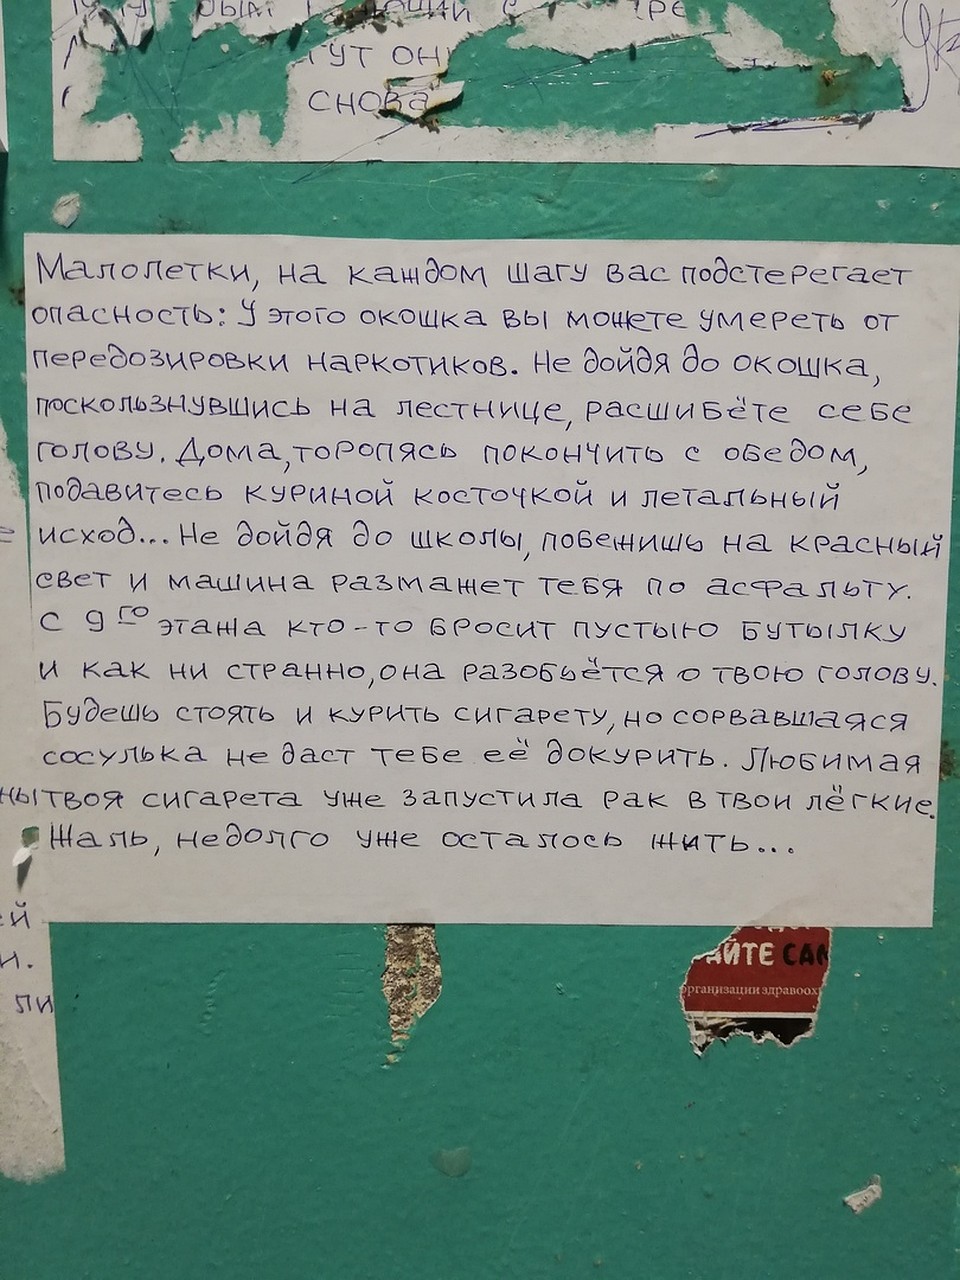 СНОВА
Малолетки, на каждом шагу вас подстерегает
опасность: У этого окошка вы можете умереть от
передозировки наркотиков. Не дойдя до окошка,
поскользнувшись на лестнице, расшибёте себе
голову. Дома, торопясь покончить с обедом,
подавитесь куриной косточкой и летальный
исход... Не дойдя до школы, побежишь на красный
свет и машина размажет тебя по асфальту.
С 9го этажа кто-то бросит пустыю бутылку
и как ни странно, она разобьётся о твою голову.
Будешь стоять и курить сигарету, но сорвавшаяся
сосулька не даст тебе её докурить. Любимая
твоя сигарета уже запустила рак в твои лёгкие.
Жаль, недолго уже осталось жить...
АЙТЕ САМ
организации здравоох